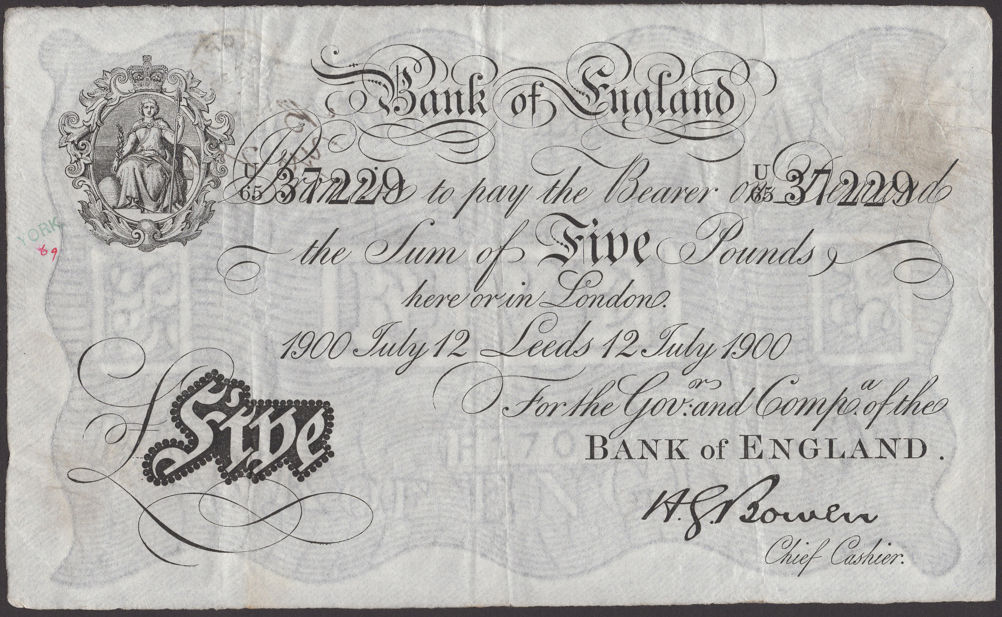 Bank of England
U
65 37229
U
65 37229
Promise to pay the Bearer on Demand
the Sum of Five Pounds,
here or in London.
1900 July 12 Leeds 12 July 1900
For the Gov.r and Comp.a of the
BANK of ENGLAND.
Five
H.G. Bowen
Chief Cashier.
YORK
69